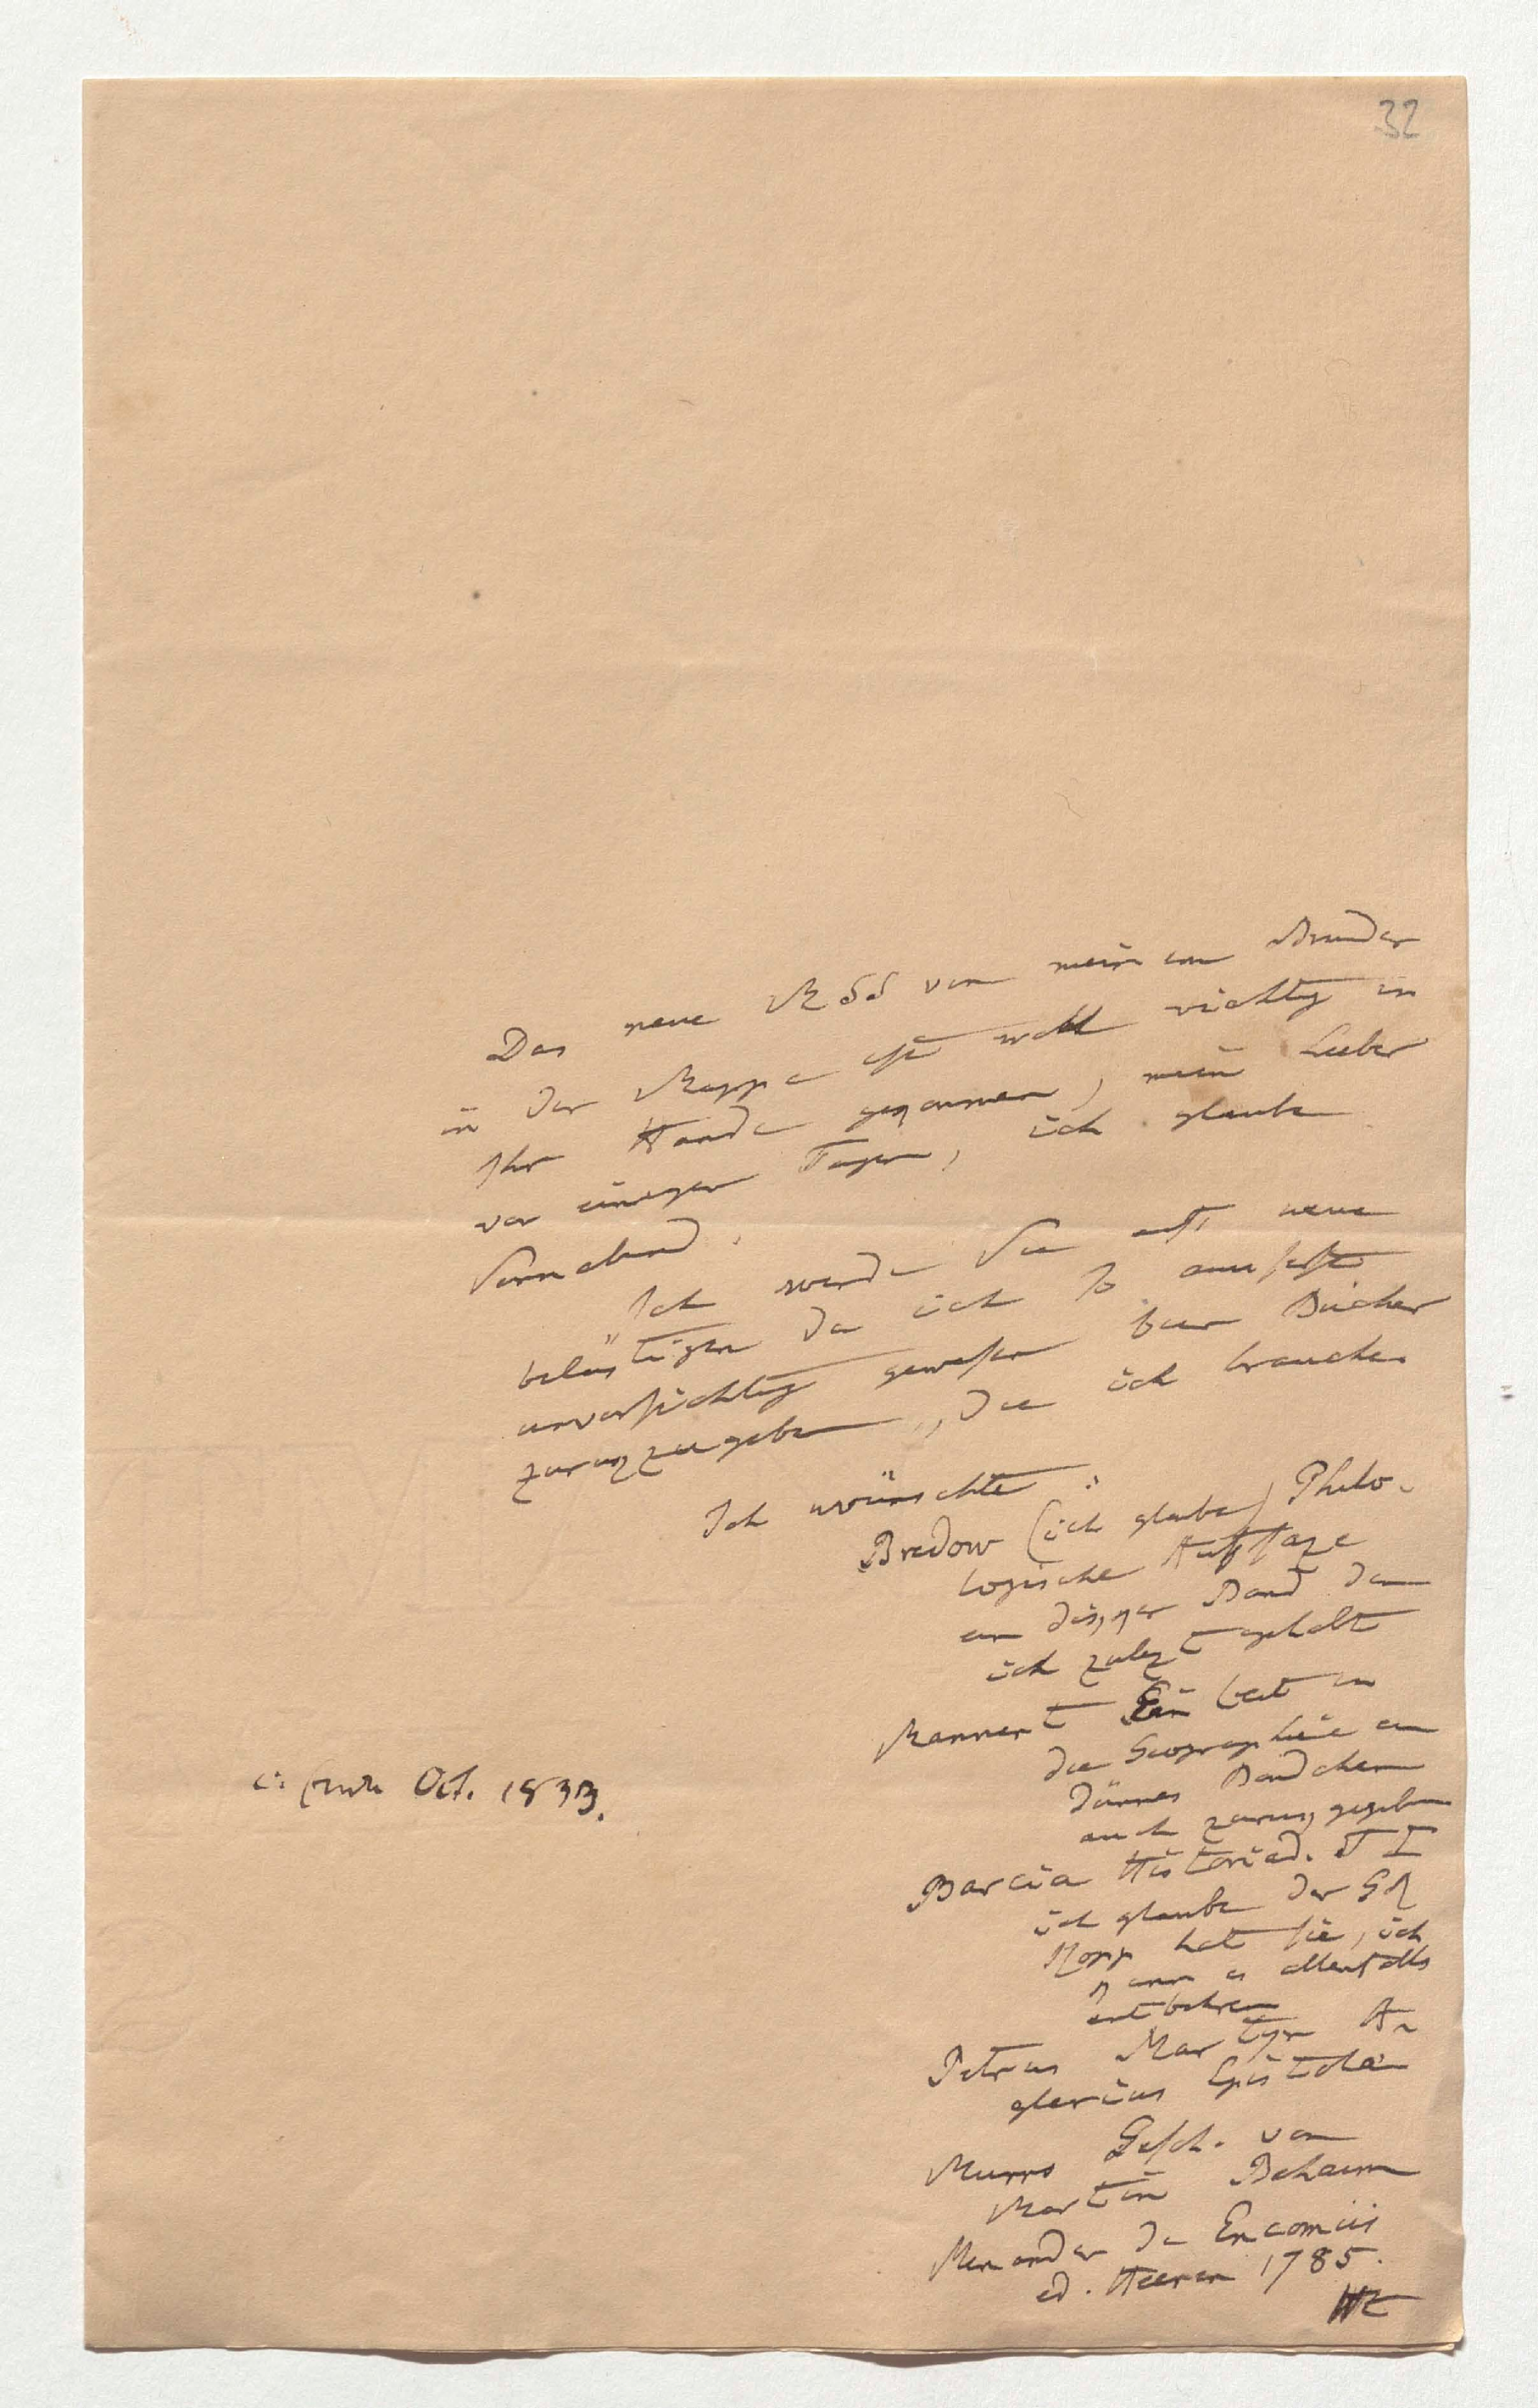 32
Das neue MSS von meinem Bruder
in der Mappe ist wohl richtig in
in
Ihre Hände gekommen, mein Lieber
vor einigen Tagen, ich glaube
Sonnabend.
Ich werde Sie aufs neue
belästigen da ich so
unvorsichtig gewesen Bücher
zurükzugeben, die ich brauche.
Ich wünschte:
Bredow (ich glaube) Philo-
logische Aufsäze
ein dikker Band den
ich zulezt gehabt
Mannert Einleit in
die Geographie ein
dünnes Bändchen
auch zurükgegeben
Barcia Historiad. T I
ich glaube der GR
Kopp hat sie, ich
kann es allenfalls
entbehren
Petrus Martyr An
glerius Epistolä
Murrs Gesch. von
Martin Behaim
Menander de Encomiis
ed. Heeren 1785.
Ht
Oct. 1833.